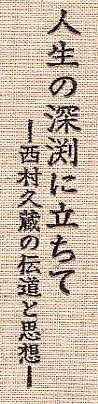 人生の深渕に立ちて
―西村久蔵の伝道と思想―